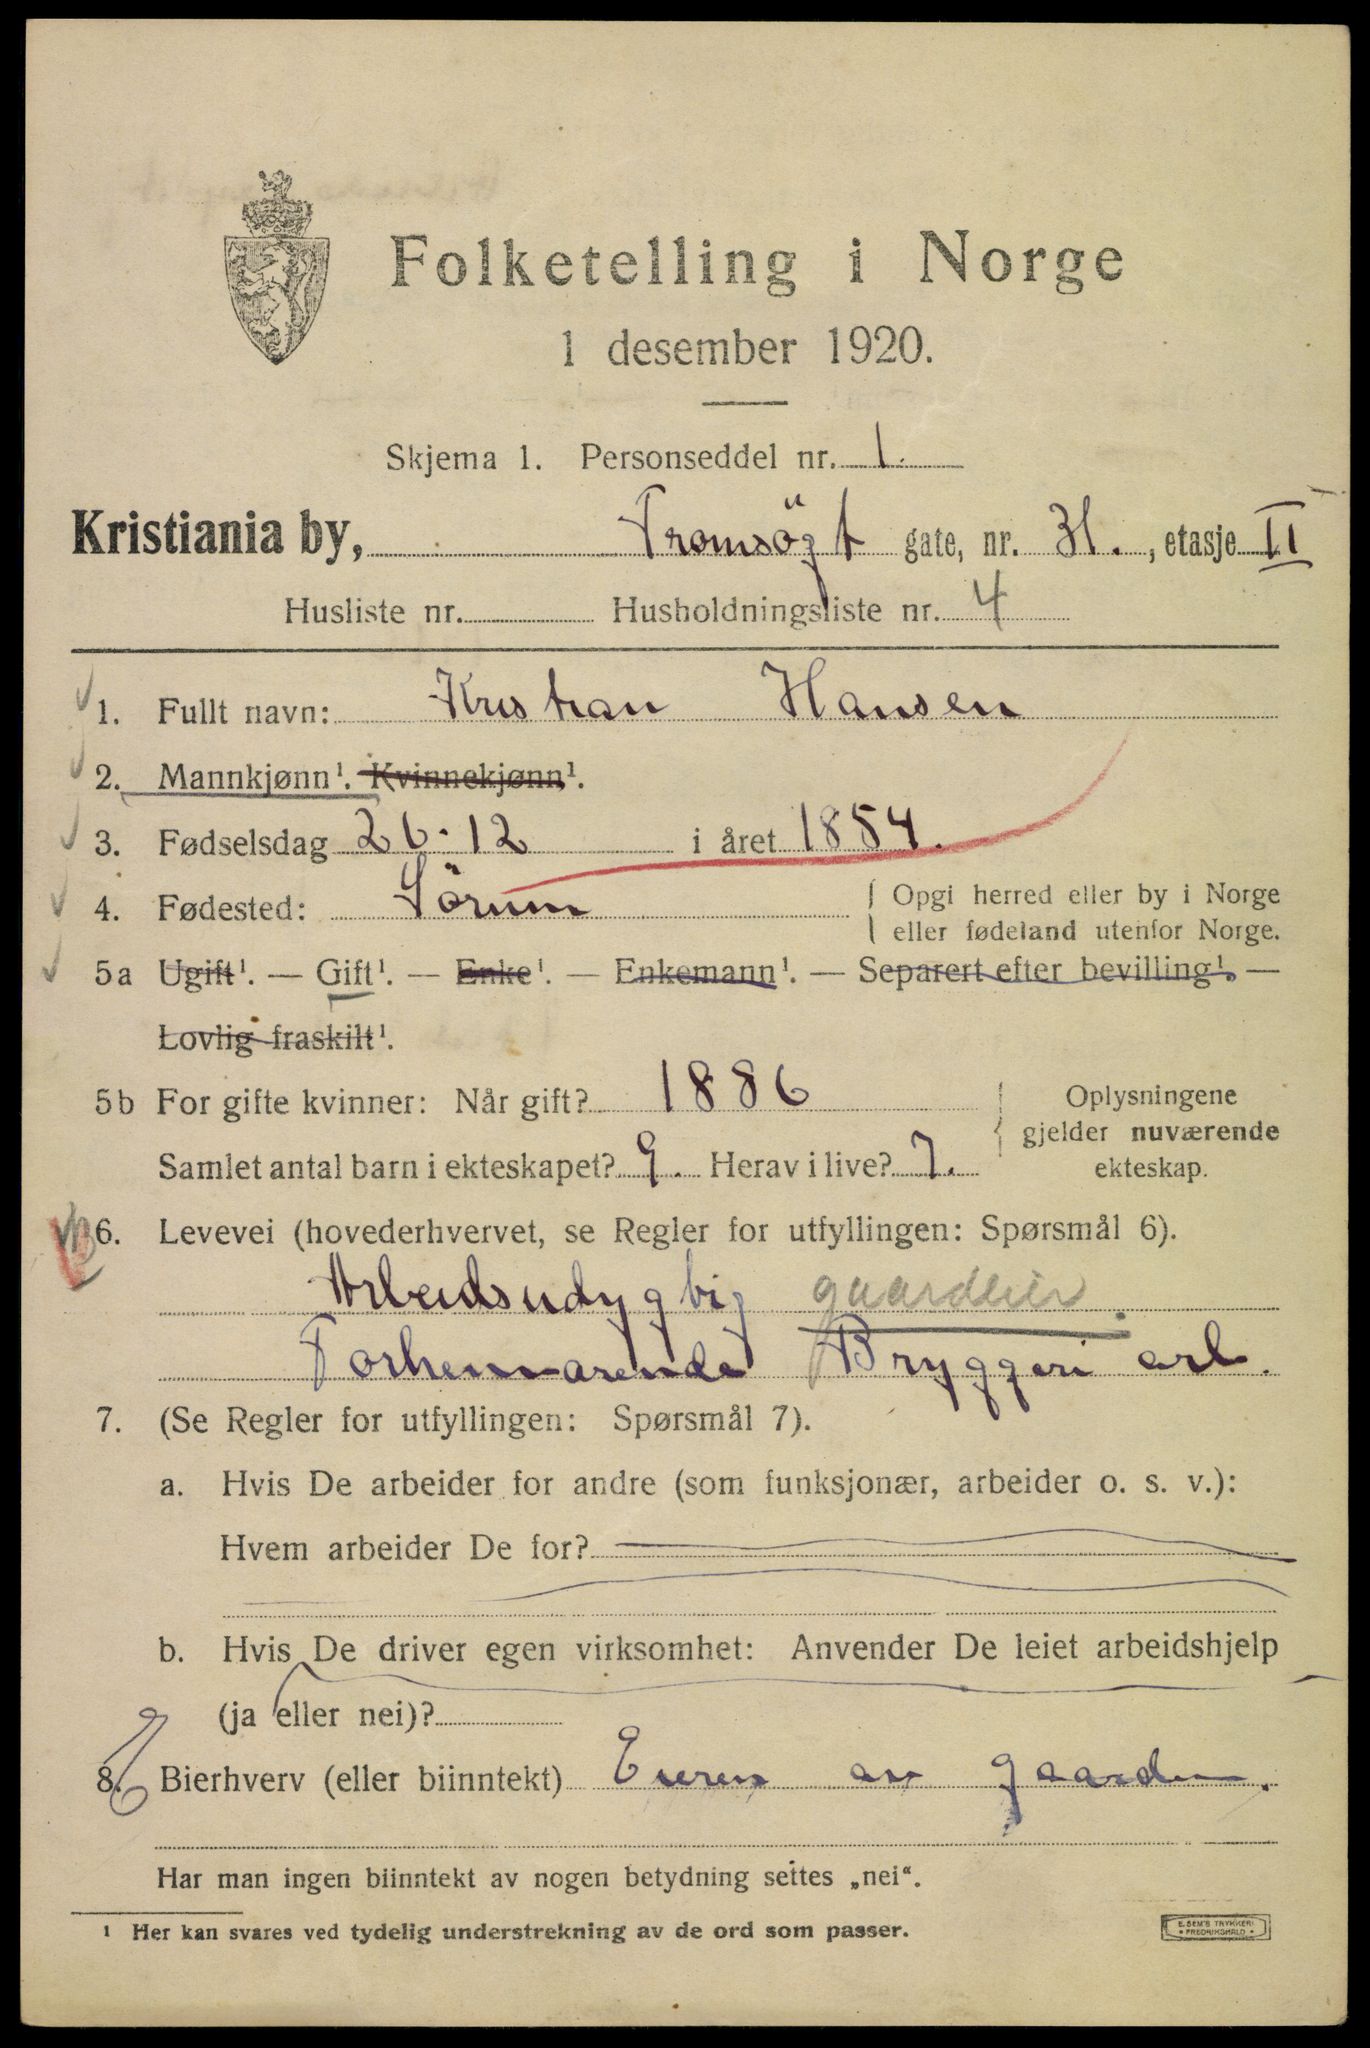 Folketelling i Norge
1 desember 1920.
Skjema 1. Personseddel nr. 1.
Kristiania by, Tromsögt gate, nr. 31., etasje II
Husliste nr. Husholdningsliste nr. 4
1. Fullt navn: Kristian Hansen
2. Mannkjønn¹. Kvinnekjønn¹.
3. Fødselsdag 26.12 i året 1854.
4. Fødested: Sörum { Opgi herred eller by i Norge
eller fødeland utenfor Norge.
5a Ugift¹. — Gift¹. — Enke¹. — Enkemann¹. — Separert efter bevilling¹. —
Lovlig fraskilt¹.
5b For gifte kvinner: Når gift? 1886 Oplysningene
gjelder nuværende
Samlet antal barn i ekteskapet? 9. Herav i live? 7. ekteskap.
6. Levevei (hovederhvervet, se Regler for utfyllingen: Spørsmål 6).
Arbeidsudygbig gaardeier
Forhenvarende Bryggeri arb.
7. (Se Regler for utfyllingen: Spørsmål 7).
a. Hvis De arbeider for andre (som funksjonær, arbeider o. s. v.):
Hvem arbeider De for?
b. Hvis De driver egen virksomhet: Anvender De leiet arbeidshjelp
(ja eller nei)?
8. Bierhverv (eller biinntekt) Eieren av gaarden.
Har man ingen biinntekt av nogen betydning settes „nei“.
¹ Her kan svares ved tydelig understrekning av de ord som passer.
E. SEM'S TRYKKERI
• FREDRIKSHALD •